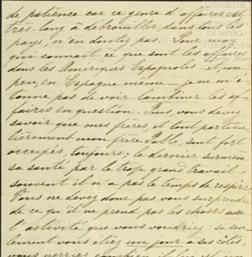 de patience car ce genre d'affaires est
très long à débrouiller, dans tous les
pays, n'en doutez pas. Pour moi
qui connait ce que sont les affaires
dans les Amériques Espagnoles et, on
peut dire Espagne même — je ne m'é
tonne pas de voir combiner les af
faires en question. Puis vous devez
savoir que mes frères, et tout particu
lièrement mon frère Pablo, sont fort
occupés, toujours; le dernier surmène
sa santé par le trop grand travail
souvent il n'a pas le temps de respirer
Vous ne devez donc pas vous surprendre
de ce qu'il ne prend pas les choses avec
l'activité que vous voudriez; si seu
lement vous étiez un jour à ses côtés
vous verriez combien il lui est